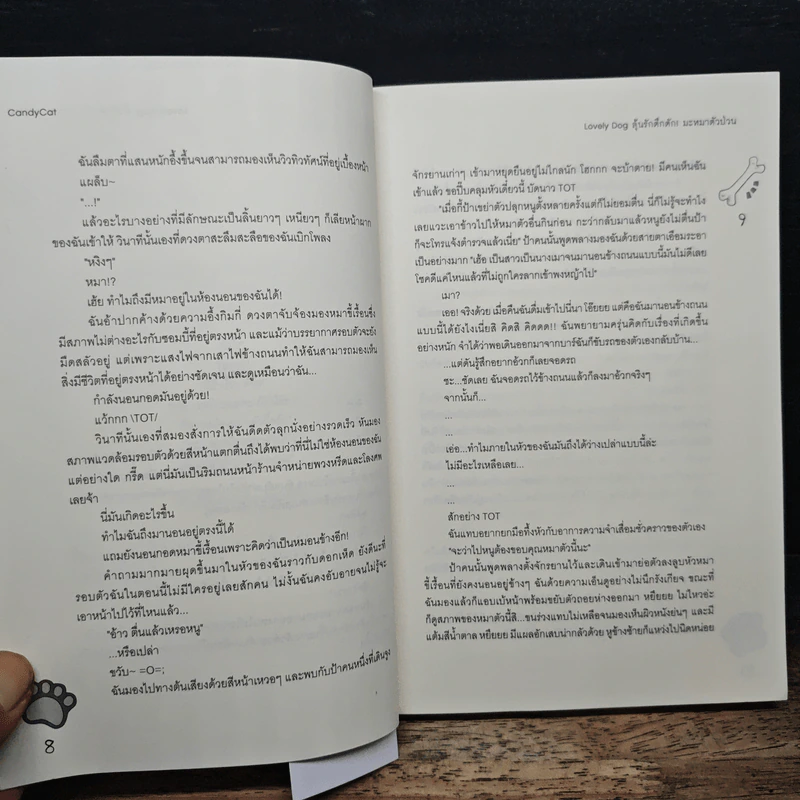 CandyCat
ฉันลืมตาที่แสนหนักอึ้งขึ้นจนสามารถมองเห็นวิวทิวทัศน์ที่อยู่เบื้องหน้า
แผล็บ~
"...!"
แล้วอะไรบางอย่างที่มีลักษณะเป็นลิ้นยาวๆ เหนียวๆ ก็เลียหน้าผาก
ของฉันเข้าให้ วินาทีนั้นเองที่ดวงตาสะลึมสะลือของฉันเบิกโพลง
"หงิงๆ"
หมา!?
เฮ้ย ทำไมถึงมีหมาอยู่ในห้องนอนของฉันได้!
ฉันอ้าปากค้างด้วยความอึ้งกิมกี่ ดวงตาจับจ้องมองหมาขี้เรื้อนซึ่ง
มีสภาพไม่ต่างอะไรกับซอมบี้ที่อยู่ตรงหน้า และแม้ว่าบรรยากาศรอบตัวจะยัง
มืดสลัวอยู่ แต่เพราะแสงไฟจากเสาไฟข้างถนนทำให้ฉันสามารถมองเห็น
สิ่งมีชีวิตที่อยู่ตรงหน้าได้อย่างชัดเจน และดูเหมือนว่าฉัน...
กำลังนอนกอดมันอยู่ด้วย!
แว้กกก \TOT/
วินาทีนั้นเองที่สมองสั่งการให้ฉันดีดตัวลุกนั่งอย่างรวดเร็ว หันมอง
สภาพแวดล้อมรอบตัวด้วยสีหน้าแตกตื่นถึงได้พบว่าที่นี่ไม่ใช่ห้องนอนของฉัน
แต่อย่างใด กรี๊ด แต่นี่มันเป็นริมถนนหน้าร้านจำหน่ายพวงหรีดและโลงศพ
เลยจ้า
นี่มันเกิดอะไรขึ้น
ทำไมฉันถึงมานอนอยู่ตรงนี้ได้
แถมยังนอนกอดหมาขี้เรื้อนเพราะคิดว่าเป็นหมอนข้างอีก!
คำถามมากมายผุดขึ้นมาในหัวของฉันราวกับดอกเห็ด ยังดีนะที่
รอบตัวฉันในตอนนี้ไม่มีใครอยู่เลยสักคน ไม่งั้นฉันคงอับอายจนไม่รู้จะ
เอาหน้าไปไว้ที่ไหนแล้ว...
"อ้าว ตื่นแล้วเหรอหนู"
...หรือเปล่า
ขวับ~ =O=;
ฉันมองไปทางต้นเสียงด้วยสีหน้าเหวอๆ และพบกับป้าคนหนึ่งที่เดินจูง
8
Lovely Dog ลุ้นรักดึ๊กดั๊ก! มะหมาตัวป่วน
จักรยานเก่าๆ เข้ามาหยุดยืนอยู่ไม่ไกลนัก โฮกกก จะบ้าตาย! มีคนเห็นฉัน
เข้าแล้ว ขอปี๊บคลุมหัวเดี๋ยวนี้ บัดนาว TOT
"เมื่อกี้ป้าเขย่าตัวปลุกหนูตั้งหลายครั้งแต่ก็ไม่ยอมตื่น นี่ก็ไม่รู้จะทำไง
เลยแวะเอาข้าวไปให้หมาตัวอื่นกินก่อน กะว่ากลับมาแล้วหนูยังไม่ตื่นป้า
ก็จะโทรแจ้งตำรวจแล้วเนี่ย" ป้าคนนั้นพูดพลางมองฉันด้วยสายตาเอือมระอา
เป็นอย่างมาก "เฮ้อ เป็นสาวเป็นนางเมาจนมานอนข้างถนนแบบนี้มันไม่ดีเลย
โชคดีแค่ไหนแล้วที่ไม่ถูกใครลากเข้าพงหญ้าไป"
เมา?
เออ! จริงด้วย เมื่อคืนฉันดื่มเข้าไปนี่นา โอ๊ยยย แต่คือฉันมานอนข้างถนน
แบบนี้ได้ยังไงเนี่ยสิ คิดสิ คิดดด!! ฉันพยายามครุ่นคิดกับเรื่องที่เกิดขึ้น
อย่างหนัก จำได้ว่าพอเดินออกมาจากบาร์ฉันก็ขับรถของตัวเองกลับบ้าน...
...แต่ดันรู้สึกอยากอ้วกก็เลยจอดรถ
ซะ...ชัดเลย ฉันจอดรถไว้ข้างถนนแล้วก็ลงมาอ้วกจริงๆ
จากนั้นก็...
...
...
เอ่อ...ทำไมภายในหัวของฉันมันถึงได้ว่างเปล่าแบบนี้ล่ะ
ไม่มีอะไรเหลือเลย...
...
...
สักอย่าง TOT
ฉันแทบอยากยกมือทึ้งหัวกับอาการความจำเสื่อมชั่วคราวของตัวเอง
"จะว่าไปหนูต้องขอบคุณหมาตัวนี้นะ"
ป้าคนนั้นพูดพลางตั้งจักรยานไว้และเดินเข้ามาย่อตัวลงลูบหัวหมา
ขี้เรื้อนที่ยังคงนอนอยู่ข้างๆ ฉันด้วยความเอ็นดูอย่างไม่นึกรังเกียจ ขณะที่
ฉันมองแล้วก็แอบเบ้หน้าพร้อมขยับตัวถอยห่างออกมา หยึยยย ไม่ไหวอ่ะ
ก็ดูสภาพของหมาตัวนี้สิ...ขนร่วงแทบไม่เหลือจนมองเห็นผิวหนังย่นๆ และมี
แต้มสีน้ำตาล หยึยยย มีแผลอักเสบน่ากลัวด้วย หูข้างซ้ายก็แหว่งไปนิดหน่อย
9